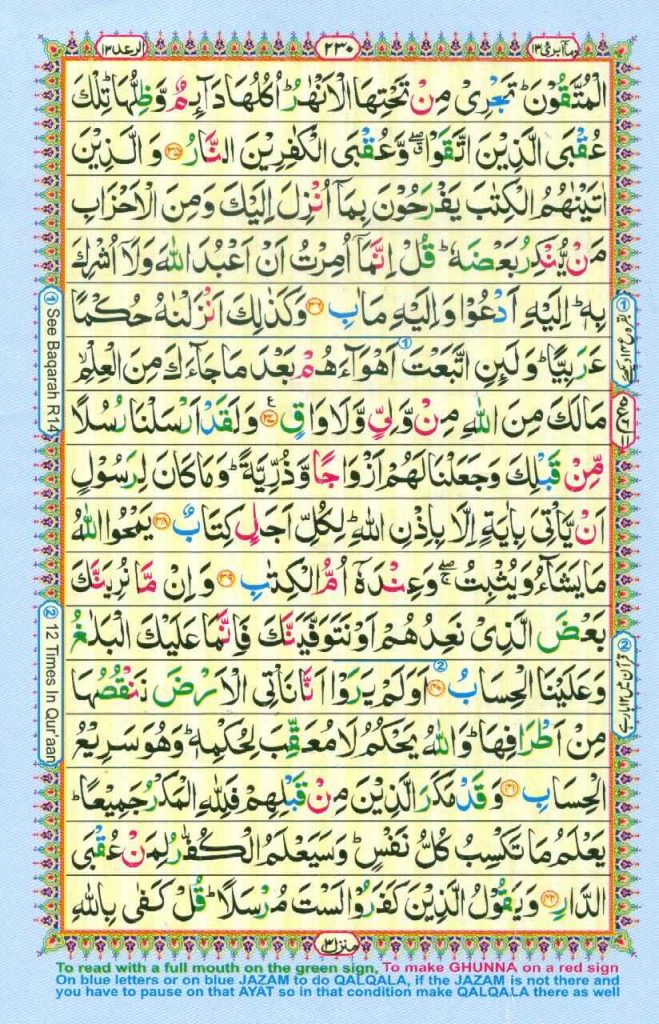 الرعد ١٣
٢٣٠
وما ابرئ ١٣
الْمُتَّقُوْنَ ؕ تَجْرِىْ مِنْ تَحْتِهَا الْاَنْهٰرُ ؕ اُكُلُهَا دَآىِٕمٌ وَّظِلُّهَا ؕ تِلْكَ
عُقْبَى الَّذِيْنَ اتَّقَوْا ۖۗ وَّعُقْبَى الْكٰفِرِيْنَ النَّارُ ﴿۳۵﴾ وَالَّذِيْنَ
اٰتَيْنٰهُمُ الْكِتٰبَ يَفْرَحُوْنَ بِمَاۤ اُنْزِلَ اِلَيْكَ وَمِنَ الْاَحْزَابِ
مَنْ يُّنْكِرُ بَعْضَهٗ ؕ قُلْ اِنَّمَاۤ اُمِرْتُ اَنْ اَعْبُدَ اللّٰهَ وَلَاۤ اُشْرِكَ
بِهٖ ؕ اِلَيْهِ اَدْعُوْا وَاِلَيْهِ مَاٰبِ ﴿۳۶﴾ وَكَذٰلِكَ اَنْزَلْنٰهُ حُكْمًا
عَرَبِيًّا ؕ وَلَىِٕنِ اتَّبَعْتَ اَهْوَآءَهُمْ بَعْدَ مَا جَآءَكَ مِنَ الْعِلْمِ ۙ
مَا لَكَ مِنَ اللّٰهِ مِنْ وَّلِىٍّ وَّلَا وَاقٍ ﴿۳۷﴾ وَلَقَدْ اَرْسَلْنَا رُسُلًا
مِّنْ قَبْلِكَ وَجَعَلْنَا لَهُمْ اَزْوَاجًا وَّذُرِّيَّةً ؕ وَمَا كَانَ لِرَسُوْلٍ
اَنْ يَّاْتِىَ بِاٰيَةٍ اِلَّا بِاِذْنِ اللّٰهِ ؕ لِكُلِّ اَجَلٍ كِتَابٌ ﴿۳۸﴾ يَمْحُوا اللّٰهُ
مَا يَشَآءُ وَيُثْبِتُ ۖۚ وَعِنْدَهٗۤ اُمُّ الْكِتٰبِ ﴿۳۹﴾ وَاِنْ مَّا نُرِيَنَّكَ
بَعْضَ الَّذِىْ نَعِدُهُمْ اَوْ نَتَوَفَّيَنَّكَ فَاِنَّمَا عَلَيْكَ الْبَلٰغُ
وَعَلَيْنَا الْحِسَابُ ﴿۴۰﴾ اَوَلَمْ يَرَوْا اَنَّا نَاْتِى الْاَرْضَ نَنْقُصُهَا
مِنْ اَطْرَافِهَا ؕ وَاللّٰهُ يَحْكُمُ لَا مُعَقِّبَ لِحُكْمِهٖ ؕ وَهُوَ سَرِيْعُ
الْحِسَابِ ﴿۴۱﴾ وَقَدْ مَكَرَ الَّذِيْنَ مِنْ قَبْلِهِمْ فَلِلّٰهِ الْمَكْرُ جَمِيْعًا ؕ
يَعْلَمُ مَا تَكْسِبُ كُلُّ نَفْسٍ ؕ وَسَيَعْلَمُ الْكُفّٰرُ لِمَنْ عُقْبَى
الدَّارِ ﴿۴۲﴾ وَيَقُوْلُ الَّذِيْنَ كَفَرُوْا لَسْتَ مُرْسَلًا ؕ قُلْ كَفٰى بِاللّٰهِ
① See Baqarah R14
② 12 Times In Qur'aan
② قرآن میں ۱۲ بار ہے
منزل ٣
To read with a full mouth on the green sign, To make GHUNNA on a red sign
On blue letters or on blue JAZAM to do QALQALA, if the JAZAM is not there and
you have to pause on that AYAT so in that condition make QALQALA there as well